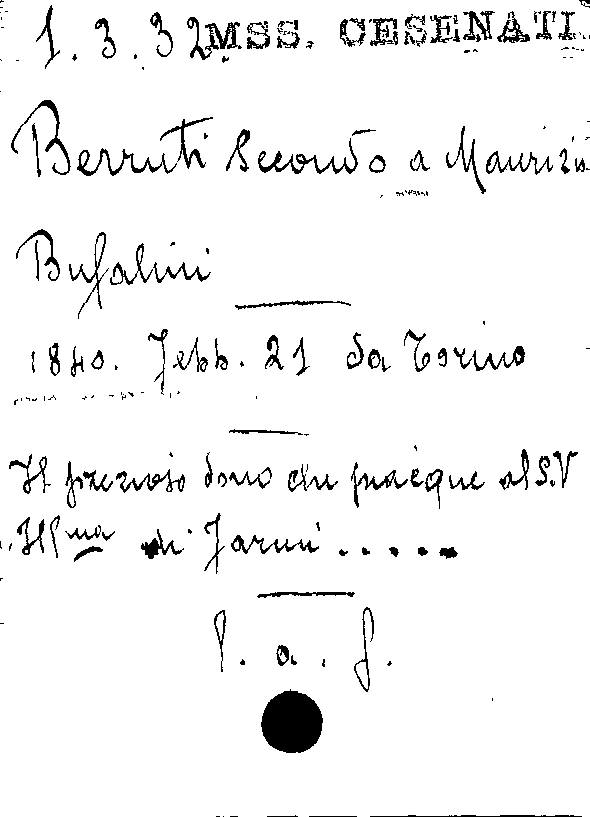 1.3.32. MSS. CESENATI
Berruti Secondo a Maurizio
Bufalini
1840. Febb. 21 da Torino
Il prezioso dono che piacque al S.V
Ill.ma di farmi .....
l. a. f.